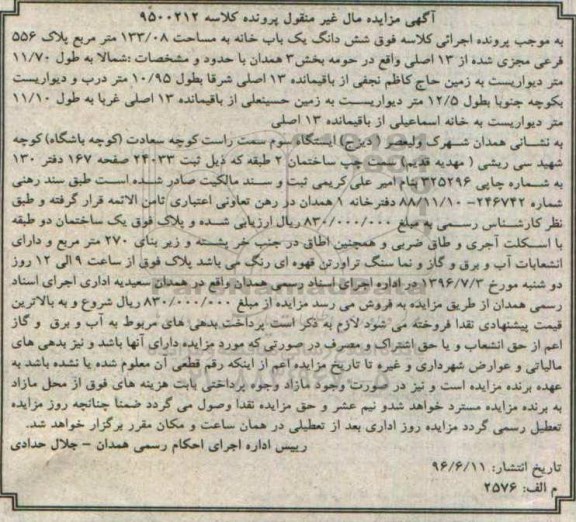 آگهی مزایده مال غیر منقول پرونده کلاسه ۹۵۰۰۲۱۲
به موجب پرونده اجرائی کلاسه فوق شش دانگ یک باب خانه به مساحت ۱۳۳/۰۸ متر مربع پلاک ۵۵۶
فرعی مجزی شده از ۱۳ اصلی واقع در حومه بخش۳ همدان با حدود و مشخصات :شمالا به طول ۱۱/۷۰
متر دیواریست به زمین حاج کاظم نجفی از باقیمانده ۱۳ اصلی شرقا بطول ۱۰/۹۵ متر درب و دیواریست
بکوچه جنوبا بطول ۱۲/۵ متر دیواریست به زمین حسینعلی از باقیمانده ۱۳ اصلی غربا به طول ۱۱/۱۰
متر دیواریست به خانه اسماعیلی از باقیمانده ۱۳ اصلی
به نشانی همدان شهرک ولیعصر ( دیزج) ایستگاه سوم سمت راست کوچه سعادت (کوچه باشگاه) کوچه
شهید سی ریشی ( مهدیه قدیم) سمت چپ ساختمان ۲ طبقه که ذیل ثبت ۲۴۰۳۳ صفحه ۱۶۷ دفتر ۱۳۰
به شماره چاپی ۳۲۵۲۹۶ بنام امیر علی کریمی ثبت و سند مالکیت صادر شده است طبق سند رهنی
شماره ۲۴۶۷۴۲- ۸۸/۱۱/۱۰ دفترخانه ۱ همدان در رهن تعاونی اعتباری ثامن الائمه قرار گرفته و طبق
نظر کارشناس رسمی به مبلغ ۸۳۰/۰۰۰/۰۰۰ ریال ارزیابی شده و پلاک فوق یک ساختمان دو طبقه
با اسکلت آجری و طاق ضربی و همچنین اطاق در جنب خر پشته و زیر بنای ۲۷۰ متر مربع و دارای
انشعابات آب و برق و گاز و نما سنگ تراورتن قهوه ای رنگ می باشد پلاک فوق از ساعت ۹ الی ۱۲ روز
دو شنبه مورخ ۱۳۹۶/۷/۳ در اداره اجرای اسناد رسمی همدان واقع در همدان سعیدیه اداری اجرای اسناد
رسمی همدان از طریق مزایده به فروش می رسد مزایده از مبلغ ۸۳۰/۰۰۰/۰۰۰ ریال شروع و به بالاترین
قیمت پیشنهادی نقدا فروخته می شود لازم به ذکر است پرداخت بدهی های مربوط به آب و برق و گاز
اعم از حق انشعاب و یا حق اشتراک و مصرف در صورتی که مورد مزایده دارای آنها باشد و نیز بدهی های
مالیاتی و عوارض شهرداری و غیره تا تاریخ مزایده اعم از اینکه رقم قطعی آن معلوم شده یا نشده باشد به
عهده برنده مزایده است و نیز در صورت وجود مازاد وجوه پرداختی بابت هزینه های فوق از محل مازاد
به برنده مزایده مسترد خواهد شدو نیم عشر و حق مزایده نقدا وصول می گردد ضمنا چنانچه روز مزایده
تعطیل رسمی گردد مزایده روز اداری بعد از تعطیلی در همان ساعت و مکان مقرر برگزار خواهد شد.
رییس اداره اجرای احکام رسمی همدان - جلال حدادی
تاریخ انتشار: ۹۶/۶/۱۱
م الف: ۲۵۷۶